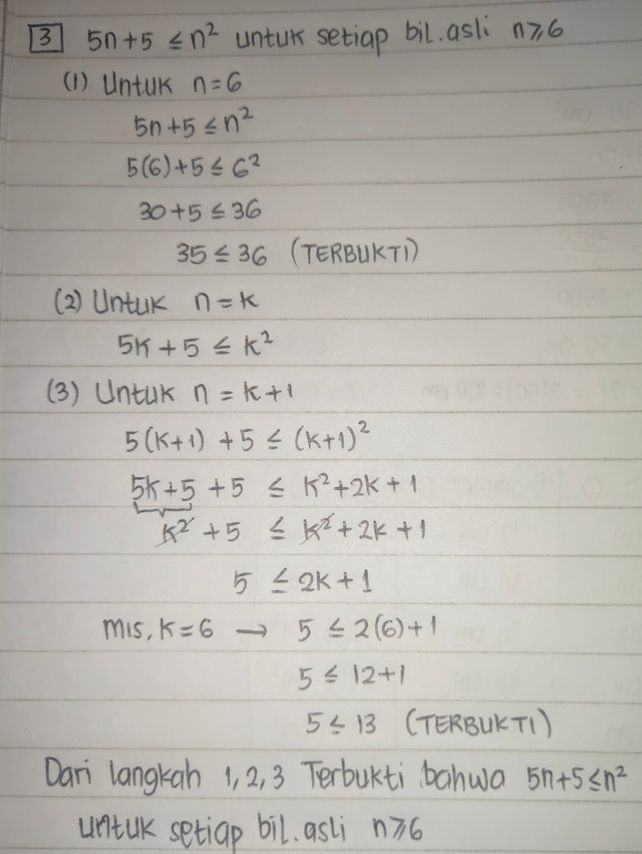 3 5n+5 ≤ n² untuk setiap bil.asli n≥6
(1) Untuk n=6
5n+5 ≤ n²
5(6)+5 ≤ 6²
30+5 ≤ 36
35 ≤ 36 (TERBUKTI)
(2) Untuk n=k
5k+5 ≤ k²
(3) Untuk n = k+1
5(k+1) +5 ≤ (k+1)²
5k+5 +5 ≤ k²+2k+1
k² +5 ≤ k²+2k+1
5 ≤ 2k+1
mis, k=6 → 5 ≤ 2(6)+1
5 ≤ 12+1
5 ≤ 13 (TERBUKTI)
Dari langkah 1,2,3 Terbukti bahwa 5n+5≤n²
untuk setiap bil.asli n≥6